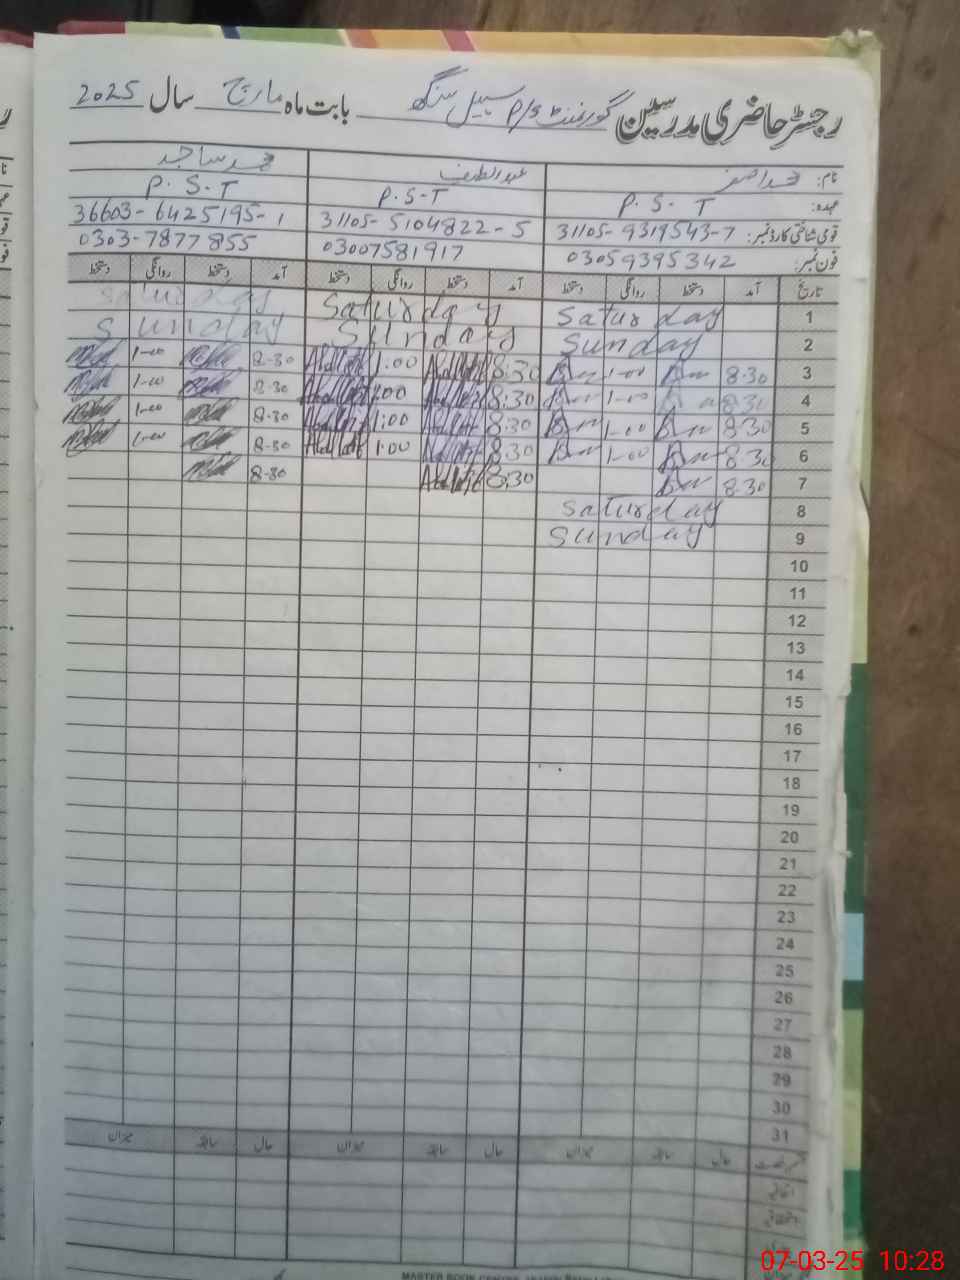 رجسٹر حاضری مدرسین گورنمنٹ P/S سہیل سنگھ بابت ماہ مارچ سال 2025
نام: محمد اصغر عبدالطیف محمد ساجد
عہدہ: P. S. T P. S-T P. S-T
قومی شناختی کارڈ نمبر: 31105-9319543-7 31105-5104822-5 36603-6425195-1
فون نمبر: 03059395342 03007581917 0303-7877855
تاریخ آمد دستخط روانگی دستخط آمد دستخط روانگی دستخط آمد دستخط روانگی دستخط
1 Saturday Saturday Saturday
2 Sunday Sunday Sunday
3 8.30 1-00 8:30 1:00 8-30 1-00
4 8.30 1-00 8:30 1:00 8-30 1-00
5 8.30 1-00 8:30 1:00 8-30 1-00
6 8.30 1-00 8:30 1:00 8-30 1-00
7 8.30 8:30 8-30
8 Saturday
9 Sunday
10
11
12
13
14
15
16
17
18
19
20
21
22
23
24
25
26
27
28
29
30
31
حال سابقہ میزان حال سابقہ میزان حال سابقہ میزان
اتفاقیہ
07-03-25 10:28